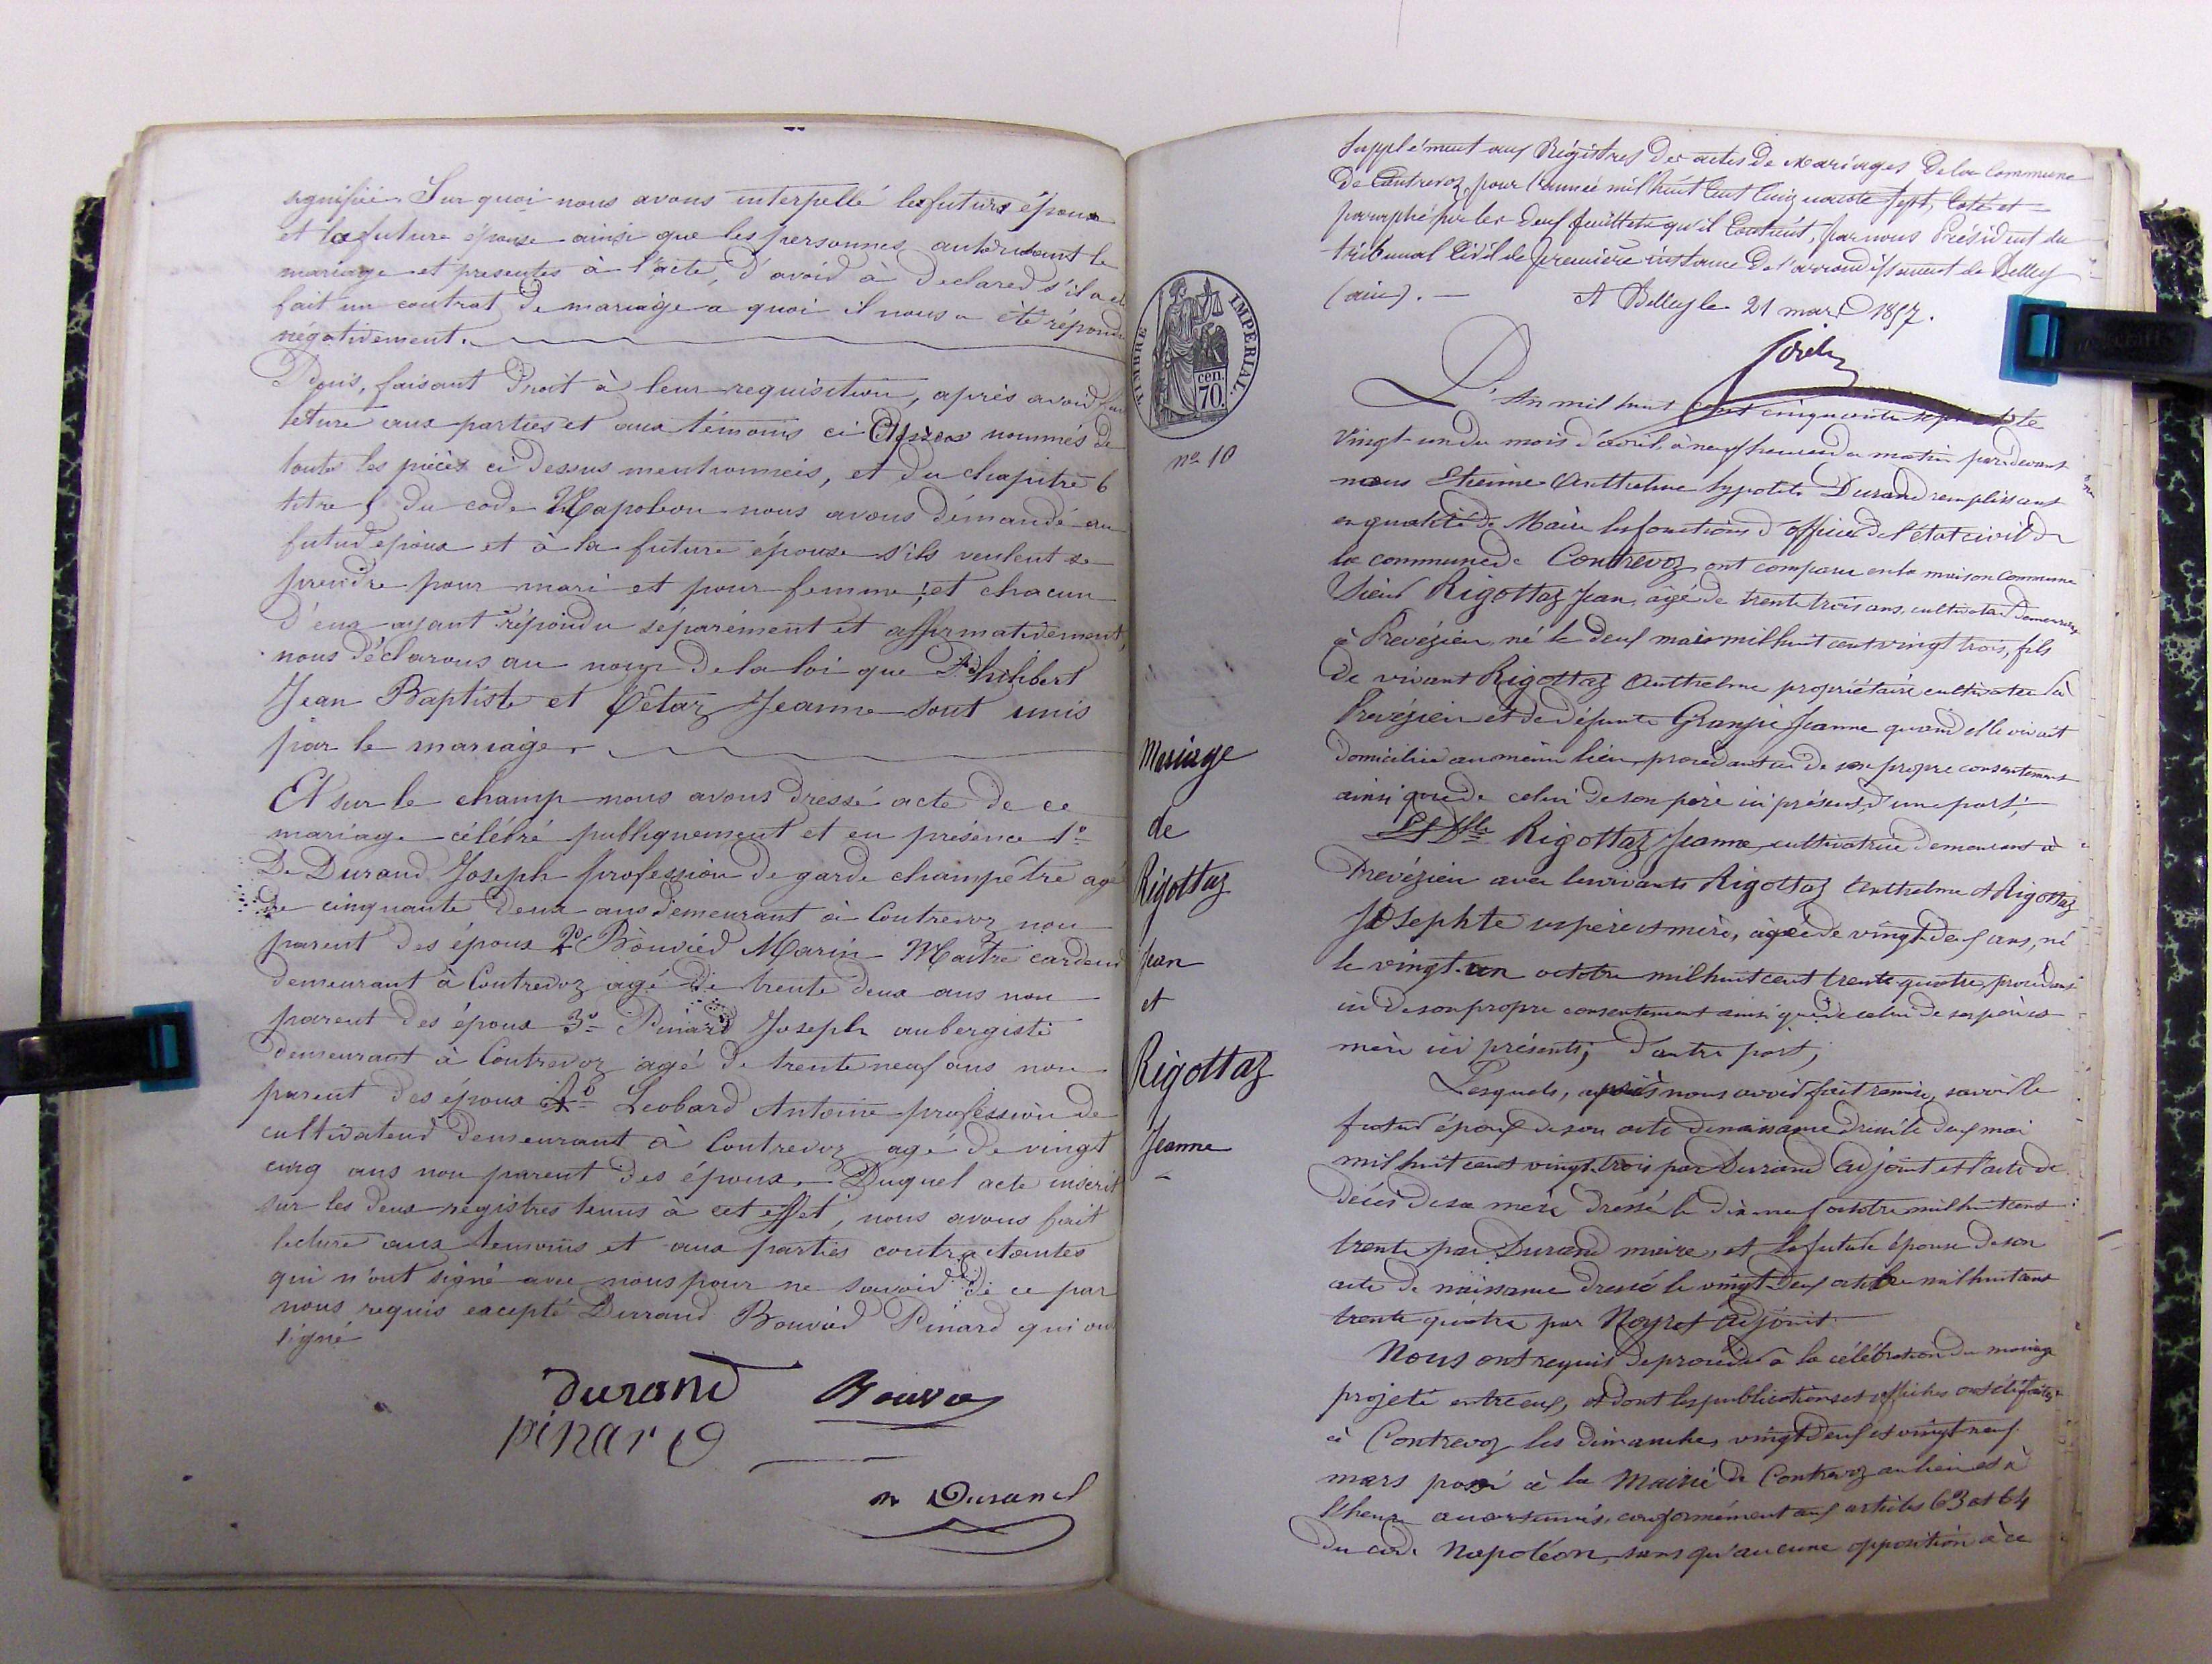 signifiée. Sur quoi nous avons interpellé le futur époux
et la future épouse ainsi que les personnes autorisant le
mariage et presentes à l'acte, d'avoir à declarer s'il a été
fait un contrat de mariage a quoi il nous a été répondu
négativement.
Puis, faisant droit à leur requisition, après avoir
leture aux parties et aux témoins ci nommés de
toutes les pièces ci dessus mentionnées, et du chapitre 6
titre 5 du code Napoléon nous avons démandé au
futur epoux et à la future épouse s'ils veulent se
prendre pour mari et pour femme; et chacun
d'eux ayant répondu séparément et affirmativement,
nous déclarons au nom de la loi que Philibert
Jean Baptiste et Jeanne sont unis
par le mariage.
Et sur le champ nous avons dressé acte de ce
mariage célébré publiquement et en présence 1º
De Durand Joseph profession de garde champêtre agé
de cinquante deux ans demeurant à Contrevoz non
parent des époux 2º Bouvier Marin Maitre cardeur
demeurant à Contrevoz agé de trente deux ans non
parent des époux 3º Pinard Joseph aubergiste
demeurant à Contrevoz agé de trente neuf ans non
parent des époux 4º Leobard Antoine profession de
cultivateur demeurant à Contrevoz agé de vingt
cinq ans non parent des époux. Duquel acte inscrit
sur les deux registres tenus à cet effet, nous avons fait
lecture aux temoins et aux parties contractantes
qui n'ont signé avec nous pour ne savoir de ce par
nous requis excepté Durand Bouvier Pinard qui ont
signé
durand Bouvie
pinard
Durand
TIMBRE IMPERIAL.
cen.
70.
nº 10
Mariage
de
Rigottaz
jean
et
Rigottaz
Jeanne
Supplément aux Régistres des actes de Mariages de la Commune
de Contrevoz, pour l'année mil huit cent cinquante sept, coté et
paraphé par les deux feuillets qu'il contient, par nous Président du
tribunal Civil de première instance de l'arrondissement de Belley
(ain). — A Belley le 21 mars 1857.
L'An mil huit cent cinquante sept et le
Vingt-un du mois d'avril, à neuf heures du matin par devant
nous Etienne Anthelme hypolite Durand remplissant
en qualité de Maire les fonctions d'officier de l'état civil de
la commune de Contrevoz ont comparu en la maison Commune
Sieur Rigottaz Jean, agé de trente trois ans, cultivateur demeurant
à Prevézieu, né le deux mai mil huit cent vingt trois, fils
de vivant Rigottaz Anthelme propriétaire cultivateur à
Prevézieu et de défunte Jeanne quand elle vivait
domiciliée au même lieu, procédant ici de son propre consentement
ainsi que de celui de son père ici présent, d'une part;
Et Dlle Rigottaz Jeanne, cultivatrice demeurant à
Prevézieu avec les vivants Rigottaz Anthelme et Rigottaz
Josephte ses père et mère, agée de vingt deux ans, né
le vingt-un octobre mil huit cent trente quatre, procédant
ici de son propre consentement ainsi que de celui de ses père et
mère ici présents; d'autre part;
Lesquels, après nous avoir fait remise, savoir le
futur époux de son acte de naissance dressé le deux mai
mil huit cent vingt trois par Durand adjoint et l'acte de
décès de sa mère dressé le dix neuf octobre mil huit cent
trente par Durand maire, et la future épouse de son
acte de naissance dressé le vingt deux octobre mil huit cent
trente quatre par Noyret adjoint.
Nous ont requis de procéder à la célébration du mariage
projeté entre eux, et dont les publications et affiches ont été faites
à Contrevoz les dimanches vingt deux et vingt neuf
mars passé à la Mairie de Contrevoz au lieu et à
l'heure accoutumés, conformément aux articles 63 et 64
du code Napoléon, sans qu'aucune opposition à ce